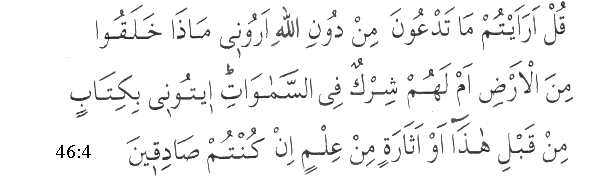 قُلْ اَرَاَيْتُمْ مَا تَدْعُونَ مِنْ دُونِ اللّٰهِ اَرُونٖى مَاذَا خَلَقُوا
مِنَ الْاَرْضِ اَمْ لَهُمْ شِرْكٌ فِى السَّمٰوَاتِؕ اٖيتُونٖى بِكِتَابٍ
مِنْ قَبْلِ هٰذَٓا اَوْ اَثَارَةٍ مِنْ عِلْمٍ اِنْ كُنْتُمْ صَادِقٖينَ 46:4